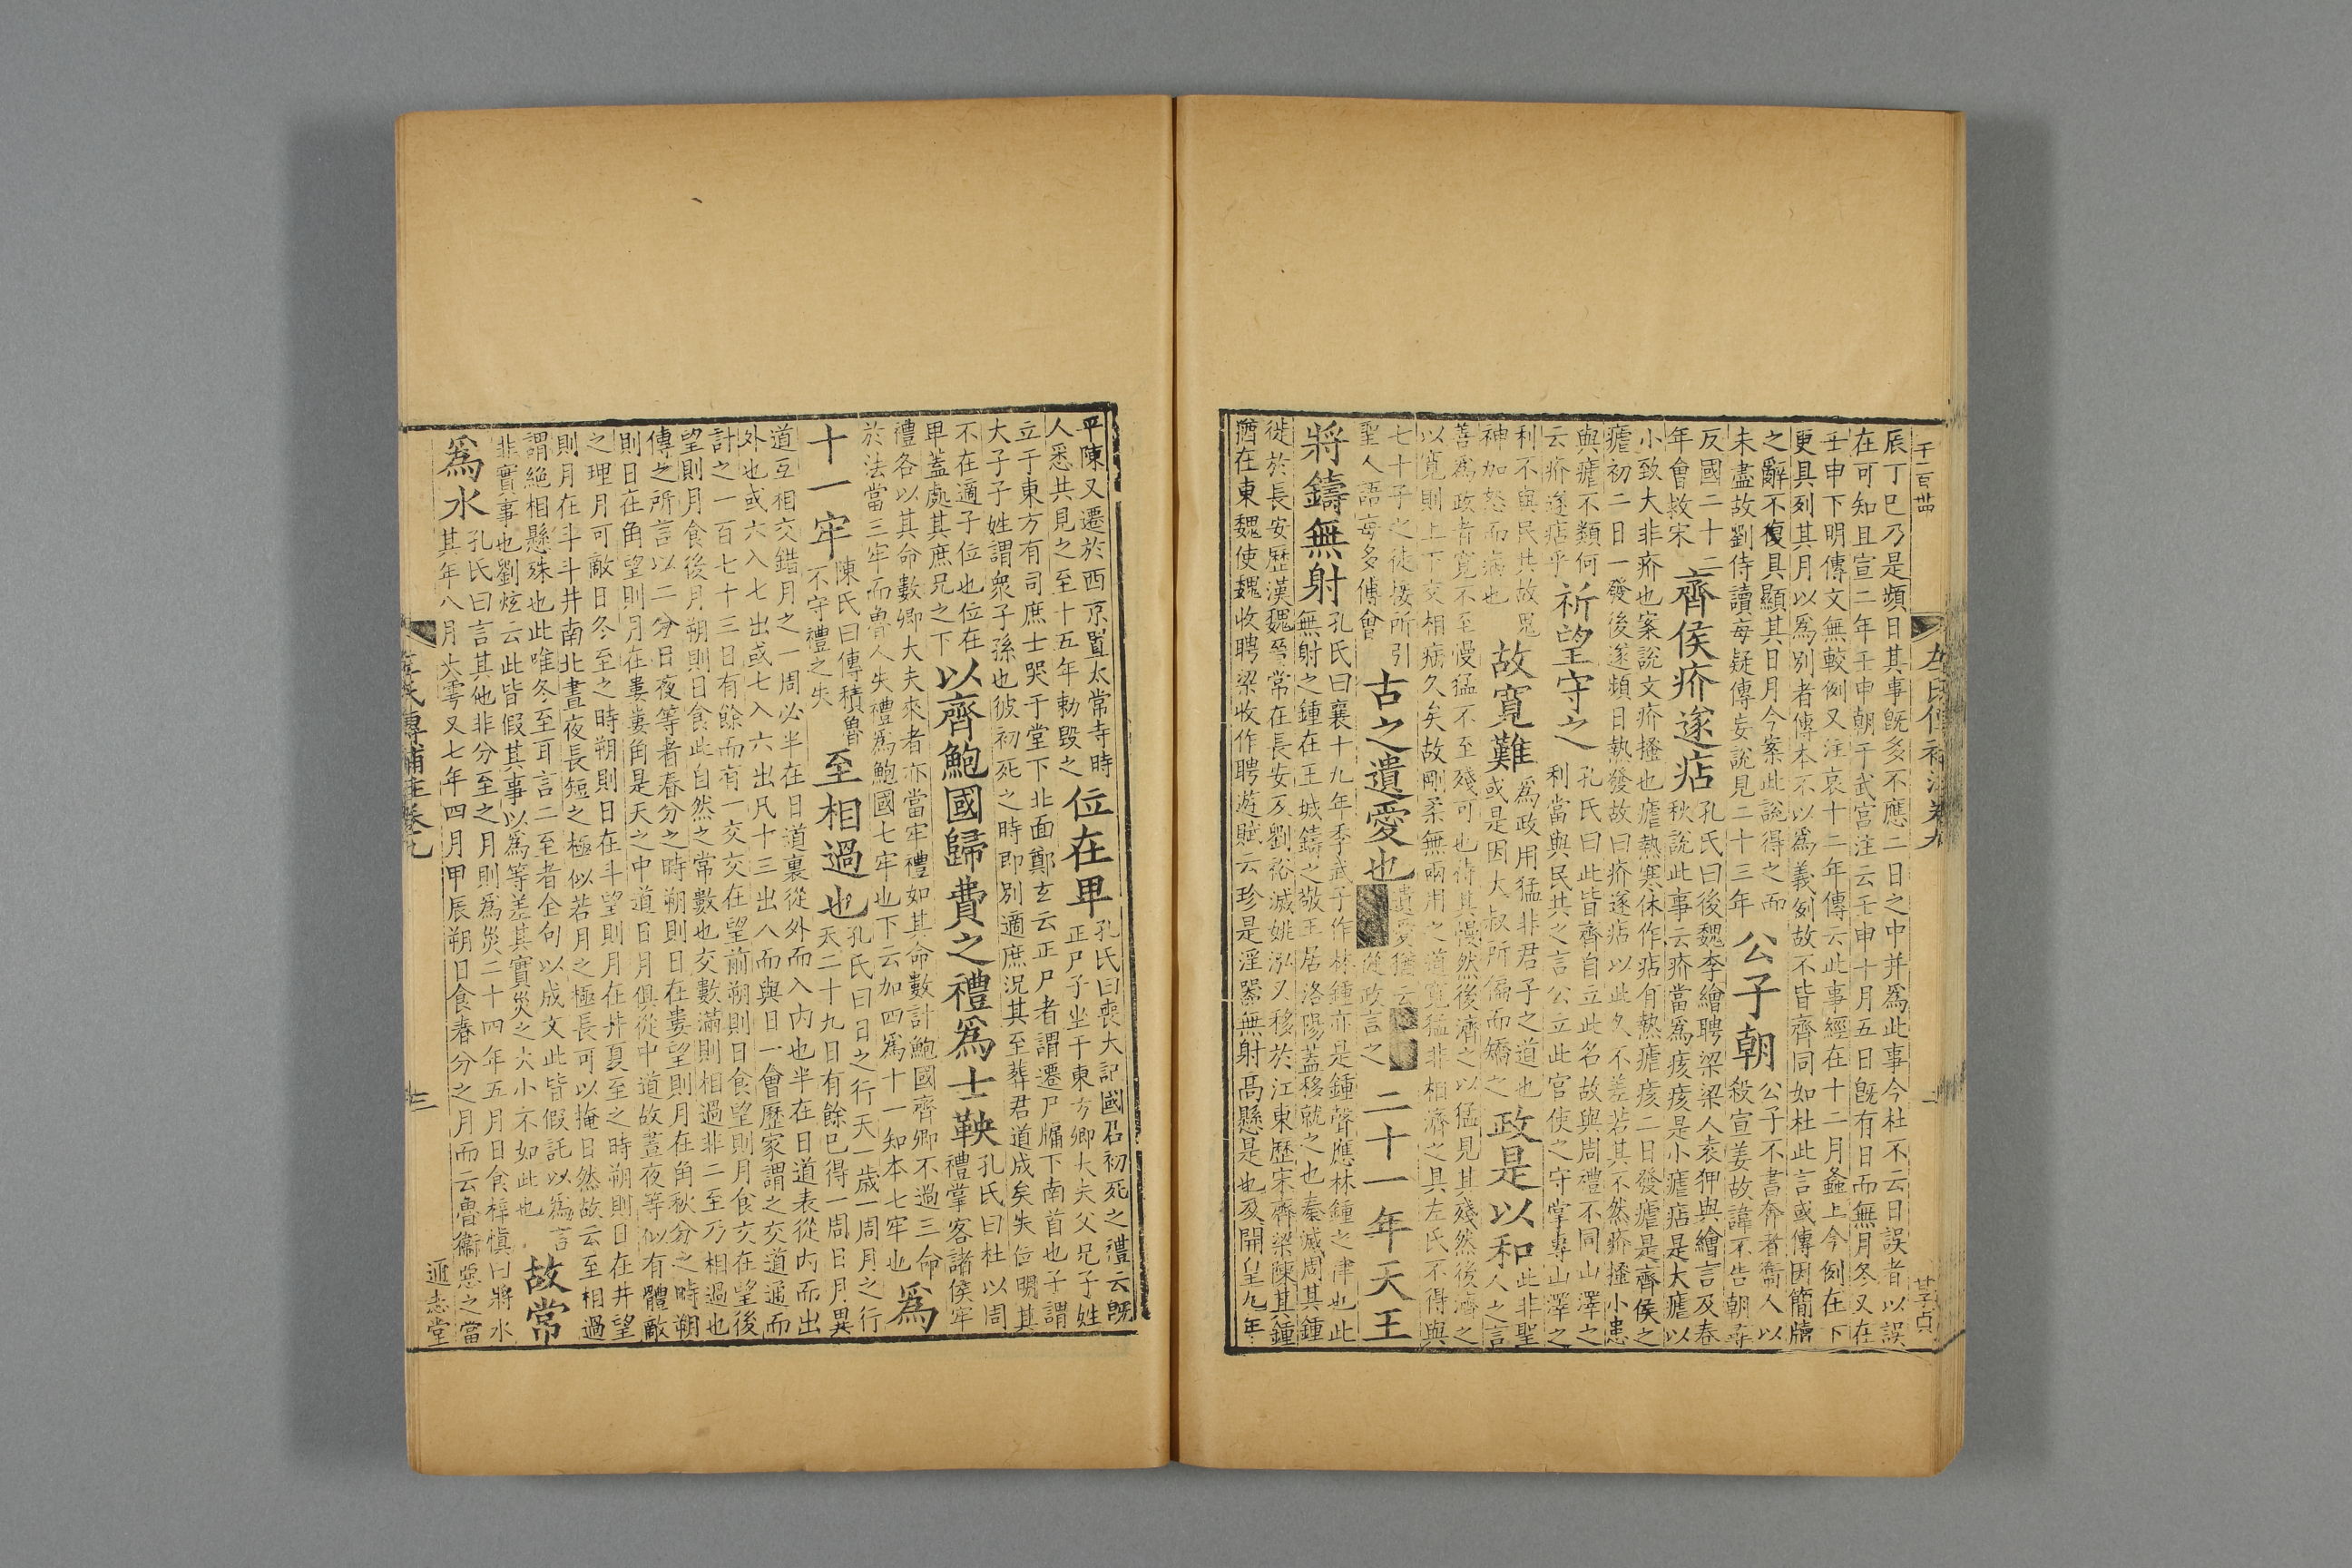 辰丁巳乃是頻日其事旣多不應二日之中并爲此事今杜不云日誤者以誤
在可知且宣二年壬申朝于武宮注云壬申十月五日旣有日而無月冬又在
壬申下明傳文無較例又注哀十二年傳云此事經在十二月螽上今例在下
更具列其月以爲別者傳本不以爲義例故不皆齊同如杜此言或傳因簡牘
之辭不復具顯其日月今案此說得之而
未盡故劉侍讀每疑傳妄說見二十三年
公子朝
公子不書奔者喬人以
殺宣姜故諱不告朝尋
反國二十二
年會救宋
齊侯疥遂痁
孔氏曰後魏李繪聘梁梁人袁狎與繪言及春
秋說此事云疥當爲痎痎是小瘧痁是大瘧以
小致大非疥也案說文疥搔也瘧熱寒休作痁有熱瘧痎二日發瘧是齊侯之
瘧初二日一發後遂頻日熱發故曰疥遂痁以此久不差若其不然疥搔小患
與瘧不類何
云疥遂痁乎
祈望守之
孔氏曰此皆齊自立此名故與周禮不同山澤之
利當與民共之言公立此官使之守掌專山澤之
利不與民共故鬼
神加怒而病也
故寬難
爲政用猛非君子之道也
或是因大叔所偏而矯之
政是以和
此非聖
人之言
善爲政者寬不至慢猛不至殘可也待其慢然後濟之以猛見其殘然後濟之
以寬則上下交相病久矣故剛柔無兩用之道寬猛非相濟之具左氏不得與
七十子之徒接所引
聖人語每多傳會
古之遺愛也
遺愛猶云
從政言之
二十一年天王
將鑄無射
孔氏曰襄十九年季武子作林鍾亦是鍾聲應林鍾之律也此
無射之鍾在王城鑄之敬王居洛陽蓋移就之也秦滅周其鍾
徙於長安歷漢魏晉常在長安及劉裕滅姚泓又移於江東歷宋齊梁陳其鍾
猶在東魏使魏收聘梁收作聘遊賦云珍是淫器無射高懸是也及開皇九年
平陳又遷於西京置太常寺時
人悉共見之至十五年勅毀之
位在卑
孔氏曰喪大記國君初死之禮云旣
正尸子坐于東方卿大夫父兄子姓
立于東方有司庶士哭于堂下北面鄭玄云正尸者謂遷尸牖下南首也子謂
大子子姓謂衆子孫也彼初死之時卽別適庶況其至葬君道成矣失位明其
不在適子位也位在
卑蓋處其庶兄之下
以齊鮑國歸費之禮爲士鞅
孔氏曰杜以周
禮掌客諸侯牢
禮各以其命數卿大夫來者亦當牢禮如其命數計鮑國齊卿不過三命
於法當三牢而魯人失禮爲鮑國七牢也下云加四爲十一知本七牢也
爲
十一牢
陳氏曰傳積魯
不守禮之失
至相過也
孔氏曰日之行天一歲一周月之行
天二十九日有餘已得一周日月異
道互相交錯月之一周必半在日道裏從外而入內也半在日道表從內而出
外也或六入七出或七入六出凡十三出入而與日一會歷家謂之交道通而
計之一百七十三日有餘而有一交交在望前朔則日食望則月食交在望後
望則月食後月朔則日食此自然之常數也交數滿則相過非二至乃相過也
傳之所言以二分日夜等者春分之時朔則日在婁望則月在角秋分之時朔
則日在角望則月在婁婁角是天之中道日月俱從中道故晝夜等似有體敵
之理月可敵日冬至之時朔則日在斗望則月在井夏至之時朔則日在井望
則月在斗斗井南北晝夜長短之極似若月之極長可以掩日然故云至相過
謂絕相懸殊也此唯冬至耳言二至者全句以成文此皆假託以爲言
非實事也劉炫云此皆假其事以爲等差其實災之大小不如此也
故常
爲水
孔氏曰言其他非分至之月則爲災二十四年五月日食梓愼曰將水
其年八月大雩又七年四月甲辰朔日食春分之月而云魯衞惡之當
左氏傳補注卷九
二
左氏傳補注卷九
三
通志堂